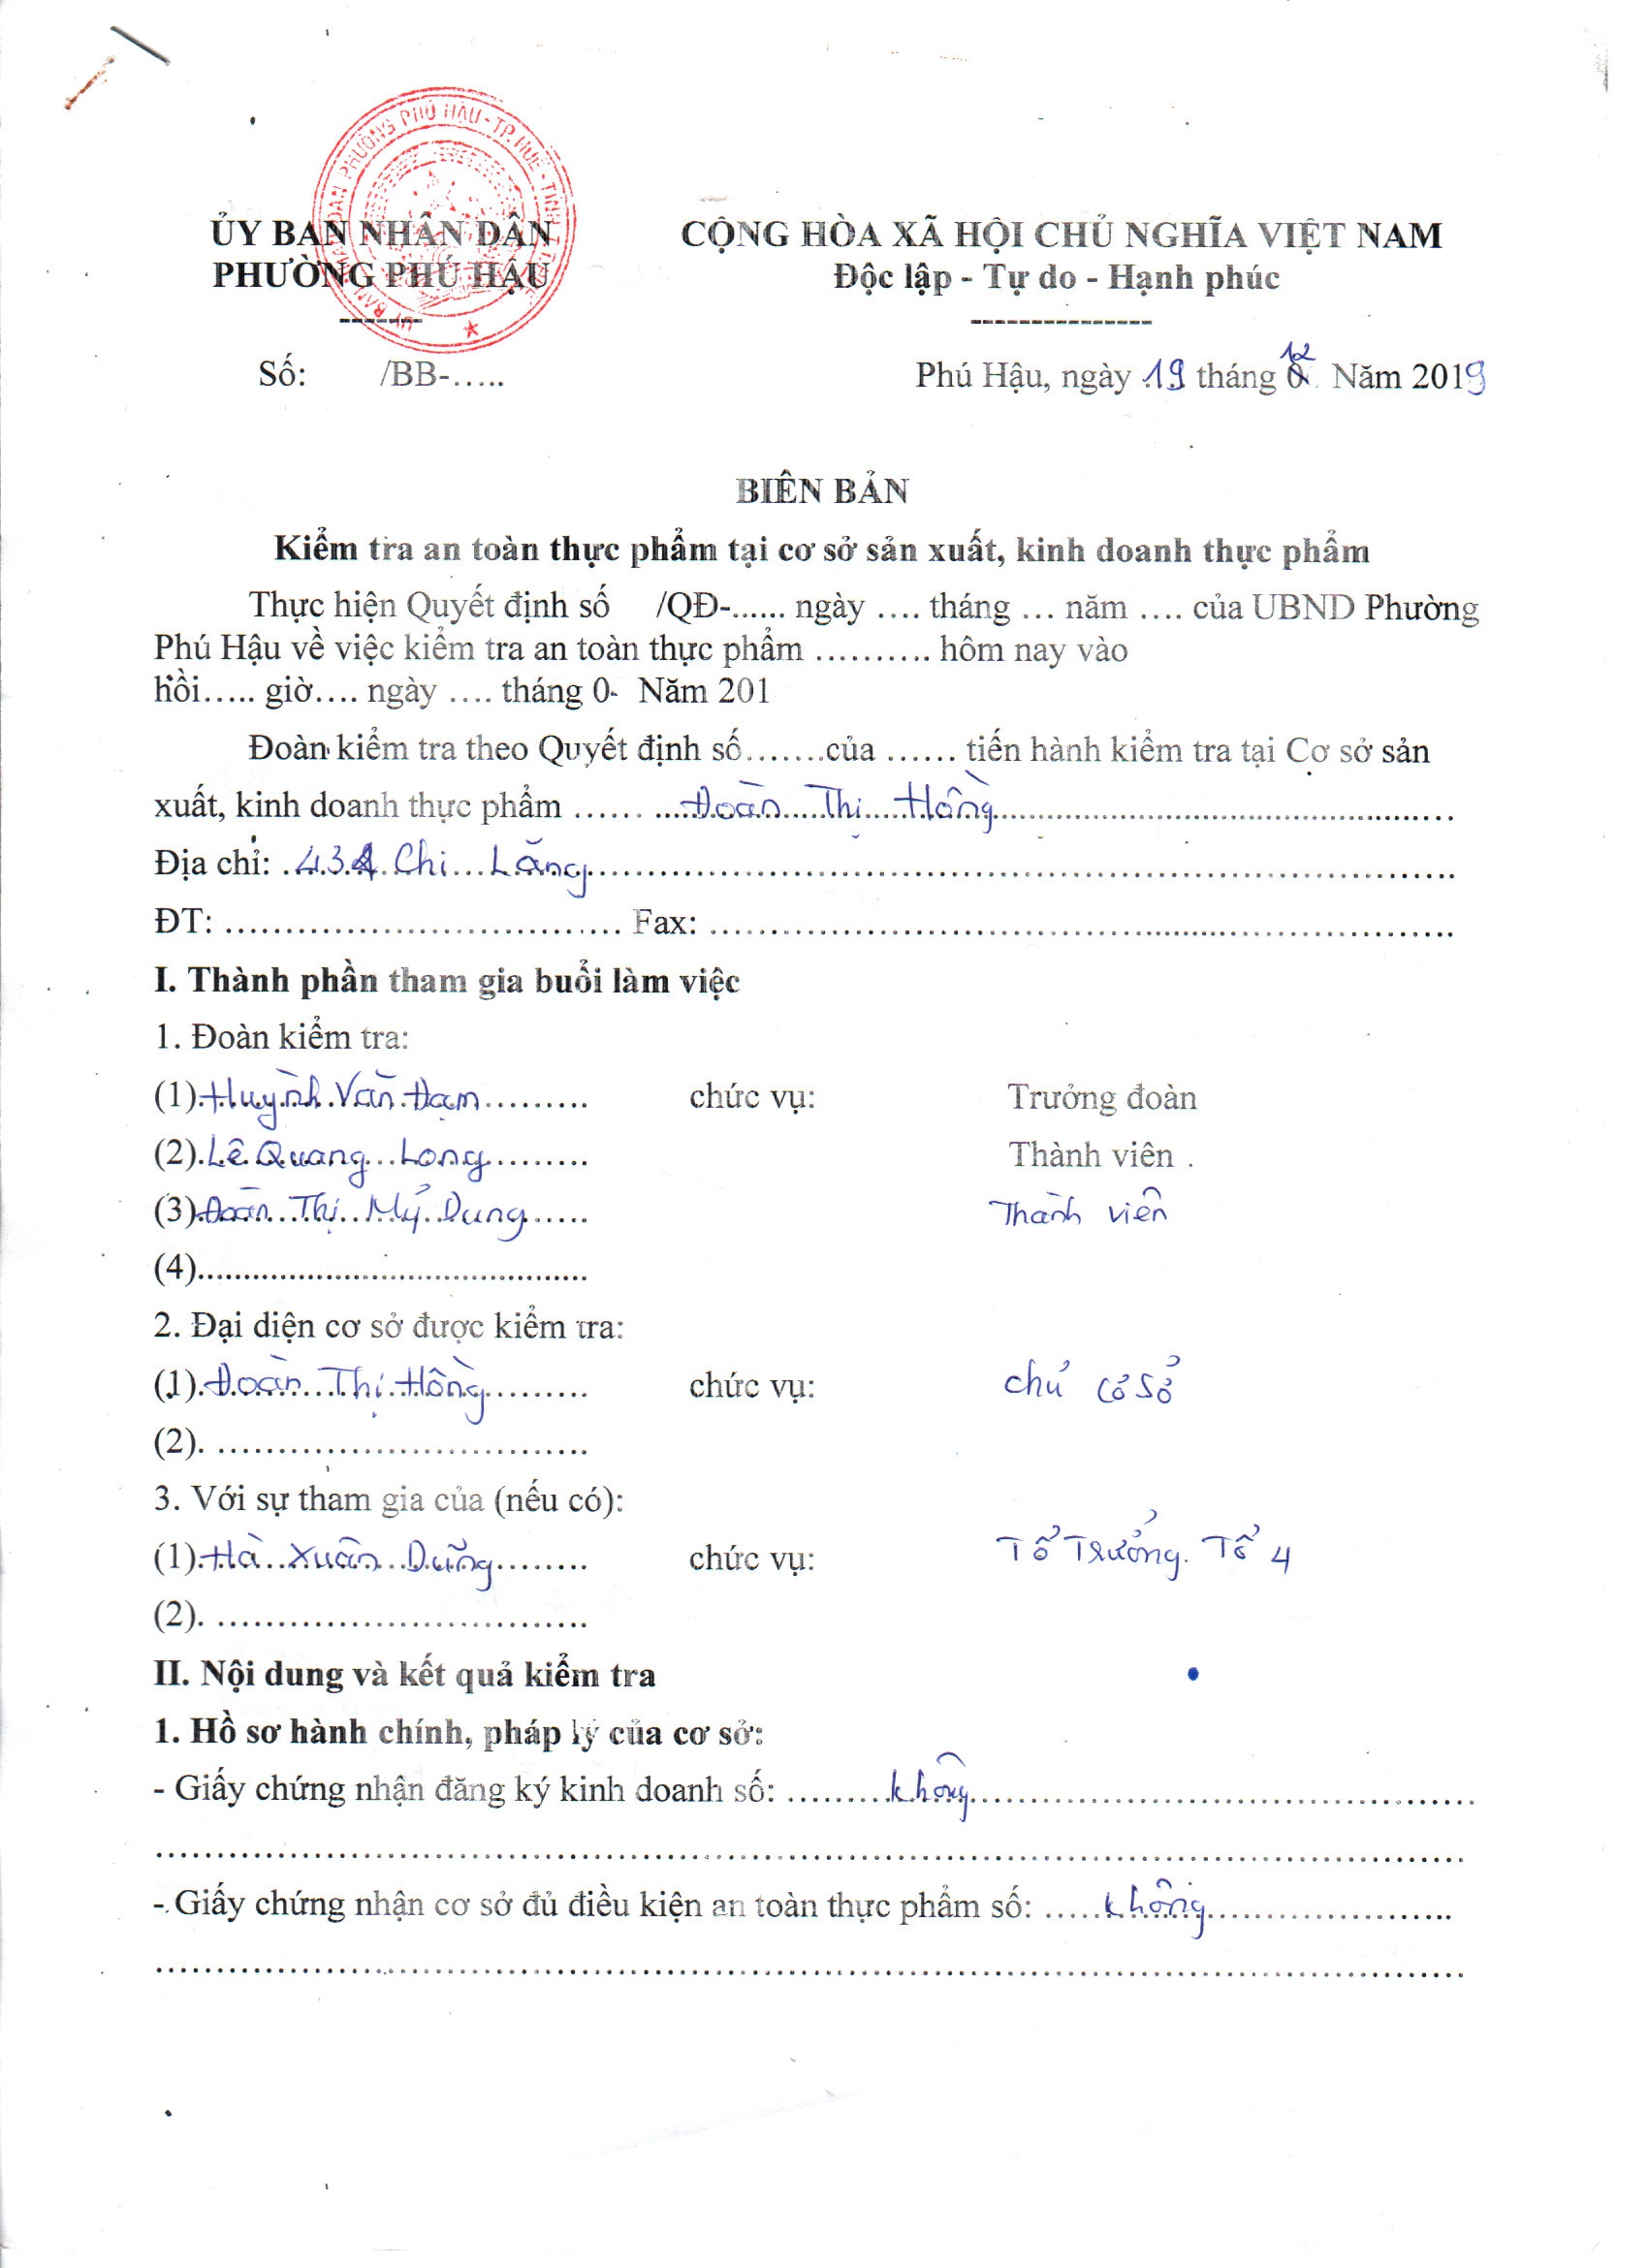 ỦY BAN NHÂN DÂN
PHƯỜNG PHÚ HẬU
-------
Số: /BB-…..
CỘNG HÒA XÃ HỘI CHỦ NGHĨA VIỆT NAM
Độc lập - Tự do - Hạnh phúc
---------------
Phú Hậu, ngày 19 tháng 12 Năm 2019
BIÊN BẢN
Kiểm tra an toàn thực phẩm tại cơ sở sản xuất, kinh doanh thực phẩm
Thực hiện Quyết định số /QĐ-...... ngày …. tháng … năm …. của UBND Phường
Phú Hậu về việc kiểm tra an toàn thực phẩm ………. hôm nay vào
hồi….. giờ…. ngày …. tháng 0 Năm 201
Đoàn kiểm tra theo Quyết định số…….của …… tiến hành kiểm tra tại Cơ sở sản
xuất, kinh doanh thực phẩm …… Đoàn Thị Hồng
Địa chỉ: Chi Lăng
ĐT: …………………………… Fax: ……………………………………………………
I. Thành phần tham gia buổi làm việc
1. Đoàn kiểm tra:
(1) Huỳnh Văn Đạm chức vụ: Trưởng đoàn
(2) Lê Quang Long Thành viên
(3) Đoàn Thị Mỷ Dung Thành viên
(4)..........................................
2. Đại diện cơ sở được kiểm tra:
(1) Đoàn Thị Hồng chức vụ: chủ cở sở
(2). …………………………
3. Với sự tham gia của (nếu có):
(1) Hà Xuân Dũng chức vụ: Tổ Trưởng. Tổ 4
(2). …………………………
II. Nội dung và kết quả kiểm tra
1. Hồ sơ hành chính, pháp lý của cơ sở:
- Giấy chứng nhận đăng ký kinh doanh số: ……… không
- Giấy chứng nhận cơ sở đủ điều kiện an toàn thực phẩm số: …… không